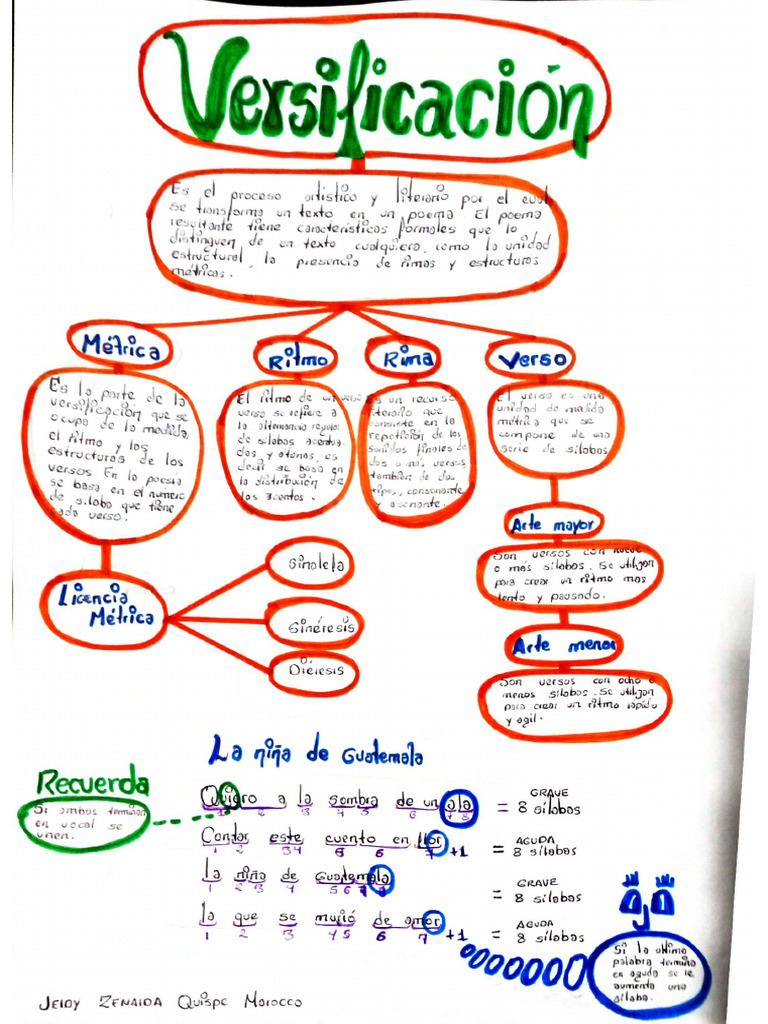 Versificación
Es el proceso artístico y literario por el cual
se transforma un texto en un poema El poema
resultante tiene características formales que lo
distinguen de un texto cualquiera, como la unidad
estructural, la presencia de rimas y estructuras
métricas.
Métrica
Es la parte de la
versificación que se
ocupa de la medida
el ritmo y las
estructuras de los
versos En la poesía
se basa en el numero
de silaba que tiene
cada verso.
Licencia
Métrica
Sinalefa
Sinéresis
Diéresis
Ritmo
El ritmo de un verso
verso se refiere a
la alternancia regular
de silabas acentua-
das y atonas, es
decir se basa en
la distribución de
los acentos.
Rima
Es un recurso
literario que
consiste en la
repetición de los
sonidos finales de
dos o más versos
tambien de dos
tipos, consonante
y asonante.
Verso
El verso es una
unidad de medida
métrica que se
compone de una
serie de sílabas
Arte mayor
Son versos con nueve
o más sílabas. Se utilizan
para crear un ritmo mas
lento y pausado.
Arte menor
Son versos con ocho o
menos sílabas. Se utilizan
para crear un ritmo rápido
y agil.
La niña de Guatemala
Recuerda
Si ambos terminan
en vocal se
unen.
Quiero a la sombra de un ala = GRAVE 8 sílabas
1 2 3 4 5 6 7 8
Contar este cuento en flor +1 = AGUDA 8 sílabas
1 2 3 4 5 6 7
La niña de Guatemala = GRAVE 8 sílabas
1 2 3 4 5 6 7 8
la que se murió de amor +1 = AGUDA 8 sílabas
1 2 3 4 5 6 7
Si la ultima
palabra termina
en aguda se le
aumenta una
sílaba.
Jeidy Zenaida Quispe Morocco